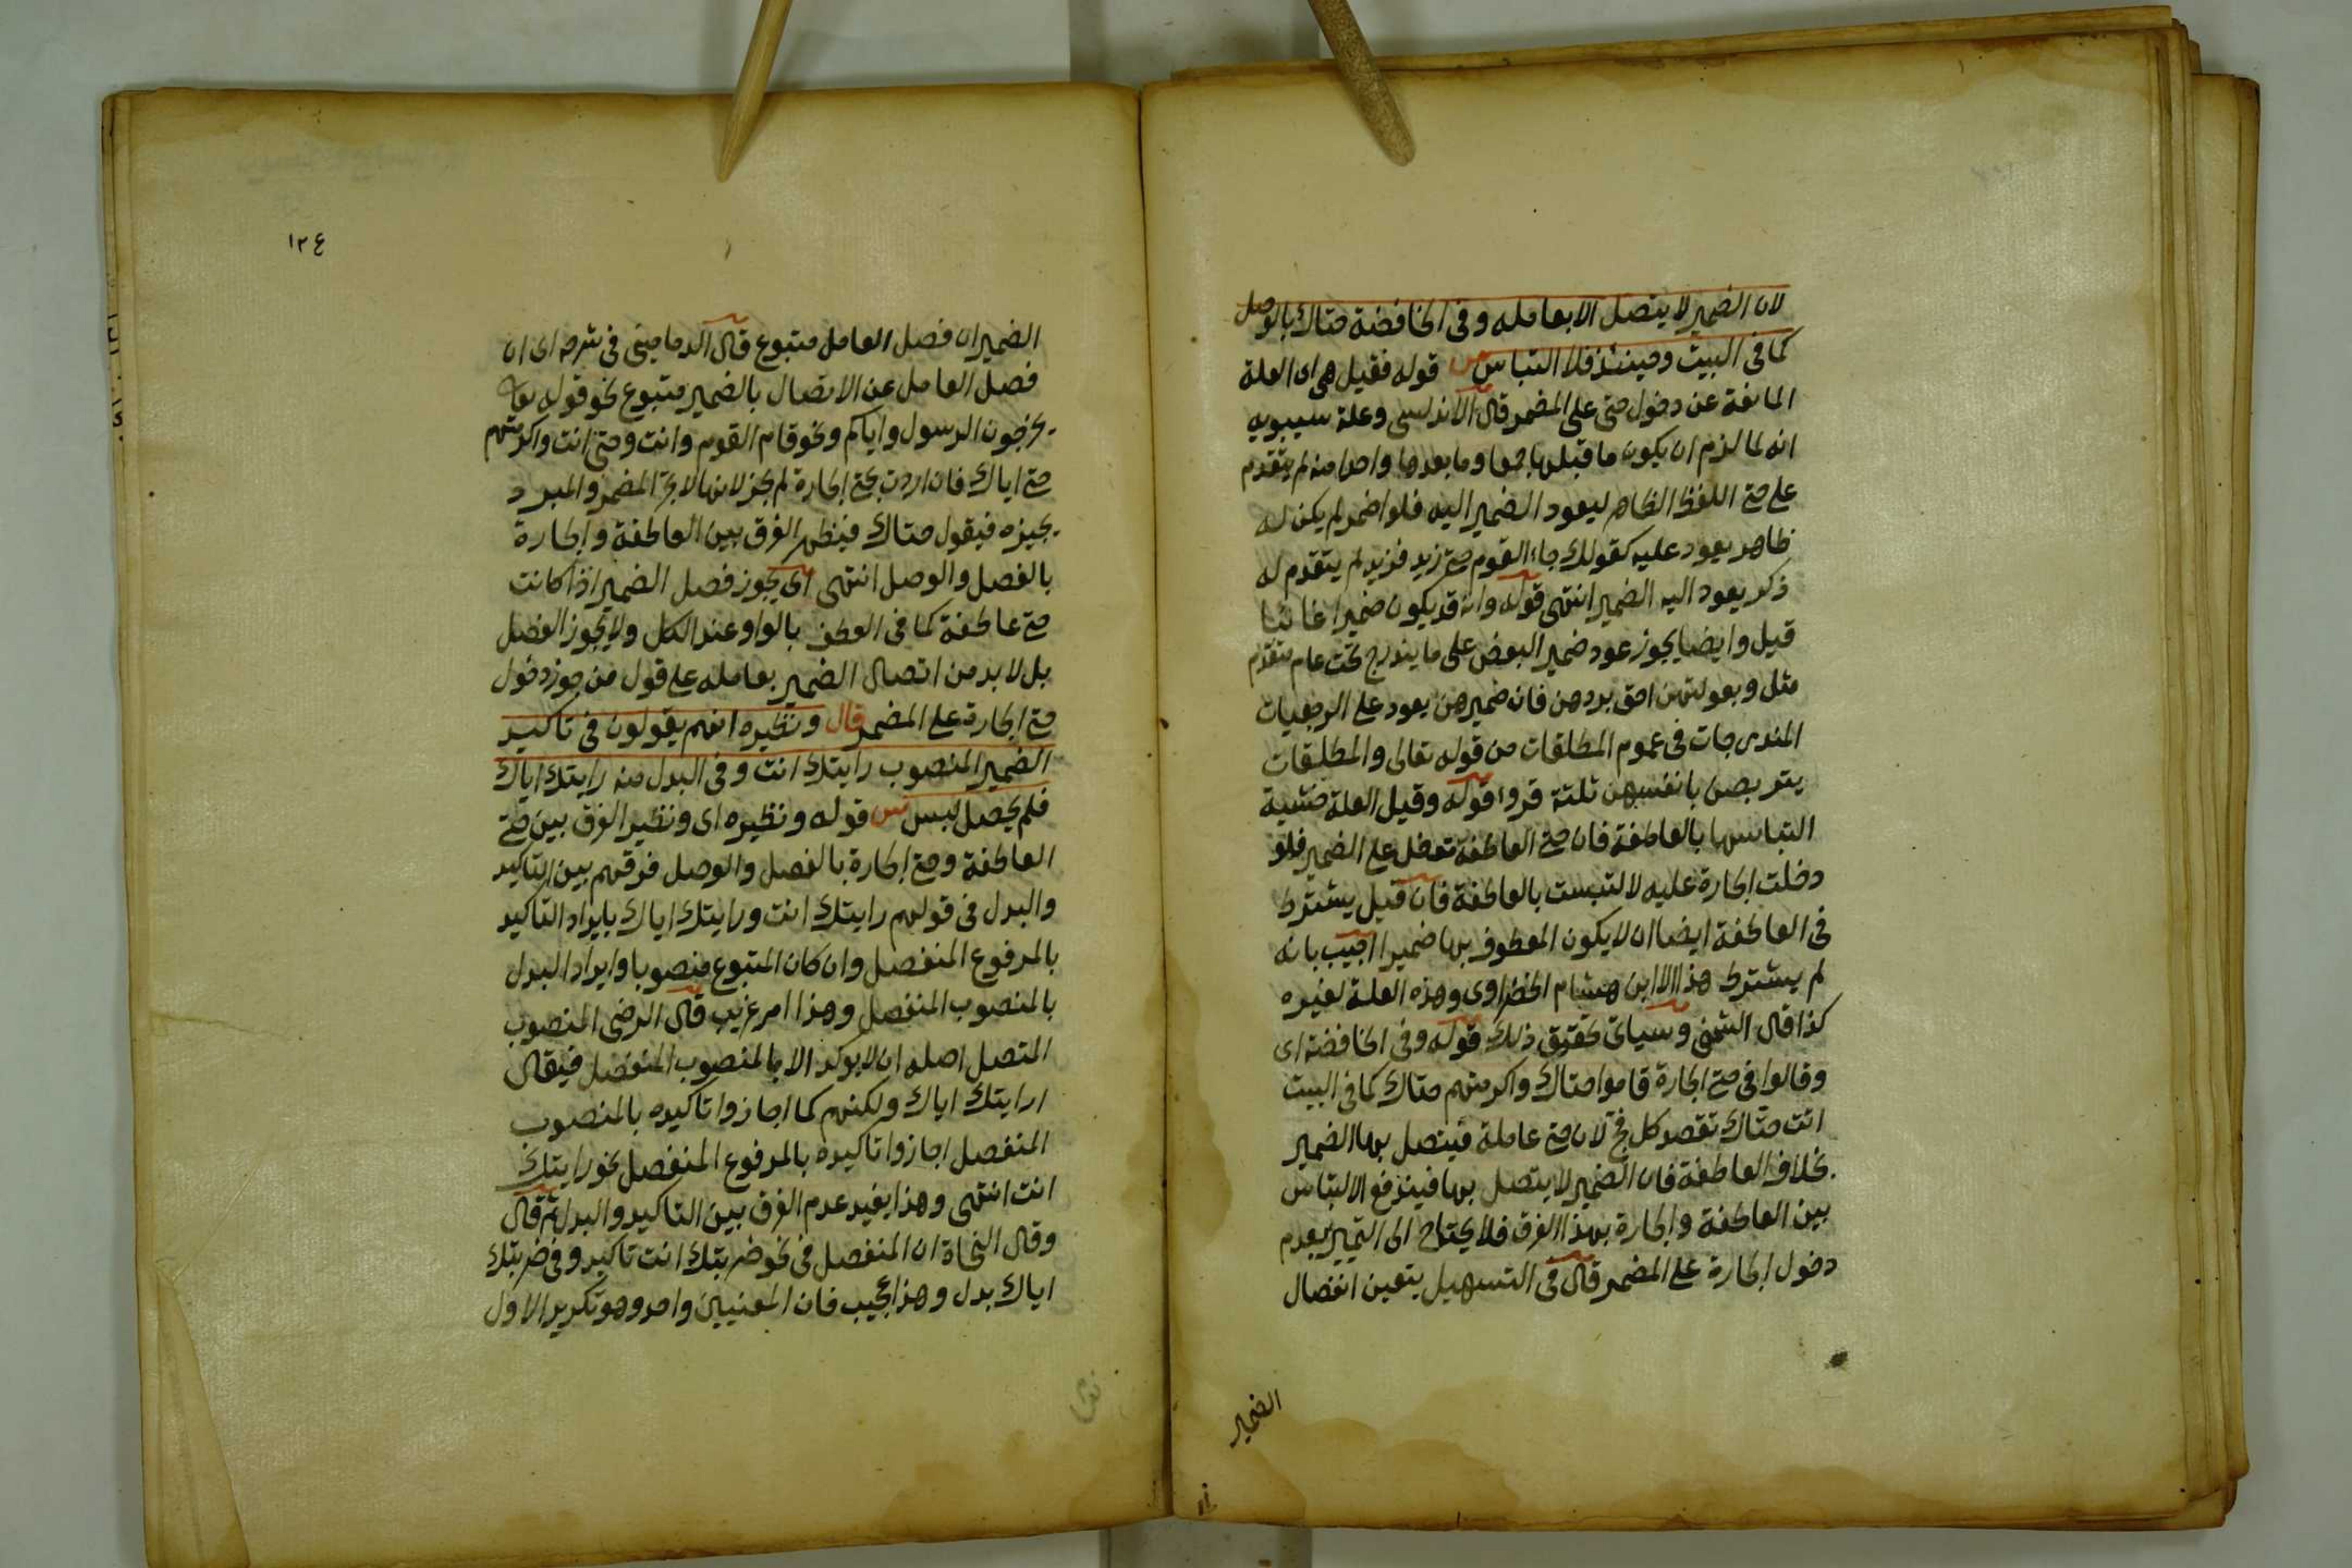 لان الضمير لا يتصل الا بعامله وفى الخافضة حتاك بالوصل
كما فى البيت وحينئذ فلا التباس ش قوله فقيل هى اى العلة
المانعة عن دخول حتى على المضمر قال الاندلسى وعلة سيبويه
انه لما لزم ان يكون ما قبلها جمعا وما بعدها واحدا منه لم يتقدم
على حتى اللفظ الظاهر ليعود الضمير اليه فلو اضمر لم يكن له
ظاهر يعود عليه كقولك جاء القوم حتى زيد فزيد لم يتقدم له
ذكر يعود اليه الضمير انتهى قوله وانه قد يكون ضميرا غائبا
قيل وايضا يجوز عود ضمير البعض على ما يندرج تحت عام متقدم
مثل وبعولتهن احق بردهن فان ضمير هن يعود على الرجعيات
المندرجات فى عموم المطلقات من قوله تعالى والمطلقات
يتربصن بانفسهن ثلثة قروء قوله وقيل العلة خشية
التباسها بالعاطفة فان حتى العاطفة تدخل على الضمير فلو
دخلت الجارة عليه لالتبست بالعاطفة فان قيل يشترط
فى العاطفة ايضا ان لا يكون المعطوف بها ضميرا اجيب بانه
لم يشترط هذا الا ابن هشام الخضراوى وهذه العلة لغيره
كذا قال الشمنى وسياتى تحقيق ذلك قوله وفى الخافضة اى
وقالوا فى حتى الجارة قاموا حتاك واكرمتهم حتاك كما فى البيت
اتت حتاك تقصد كل فج لان حتى عاملة فيتصل بها الضمير
بخلاف العاطفة فان الضمير لا يتصل بها فيندفع الالتباس
بين العاطفة والجارة بهذا الفرق فلا يحتاج الى التمييز بعدم
دخول الجارة على المضمر قال فى التسهيل يتعين انفصال
الضمير
١٢٤
الضمير ان فصل العامل متبوع قال الدمامينى فى شرحه اى ان
فصل العامل عن الاتصال بالضمير متبوع نحو قوله تعا
يخرجون الرسول واياكم ونحو قام القوم وانت وحتى انت واكرمتهم
حتى اياك فان اردت بحتى الجارة لم يجز لانها لا تجر المضمر والمبرد
يجيزه فيقول حتاك فيظهر الفرق بين العاطفة والجارة
بالفصل والوصل انتهى اى يجوز فصل الضمير اذا كانت
حتى عاطفة كما فى العطف بالواو عند الكل ولا يجوز الفصل
بل لا بد من اتصال الضمير بعامله على قول من جوز دخول
حتى الجارة على المضمر قال ونظيره انهم يقولون فى تاكيد
الضمير المنصوب رايتك انت وفى البدل منه رايتك اياك
فلم يحصل لبس ش قوله ونظيره اى ونظير الفرق بين حتى
العاطفة وحتى الجارة بالفصل والوصل فرقهم بين التاكيد
والبدل فى قولهم رايتك انت ورايتك اياك بايراد التاكيد
بالمرفوع المنفصل وان كان المتبوع منصوبا وايراد البدل
بالمنصوب المنفصل وهذا امر غريب قال الرضى المنصوب
المتصل اصله ان لا يوكد الا بالمنصوب المنفصل فيقال
ارايتك اياك ولكنهم كما اجازوا تاكيده بالمنصوب
المنفصل اجازوا تاكيده بالمرفوع المنفصل نحو رايتك
انت انتهى وهذا يفيد عدم الفرق بين التاكيد والبدل ثم قال
وقال النحاة ان المنفصل فى نحو ضربتك انت تاكيد وفى ضربتك
اياك بدل وهذا عجيب فان المعنيين واحد وهو تكرير الاول